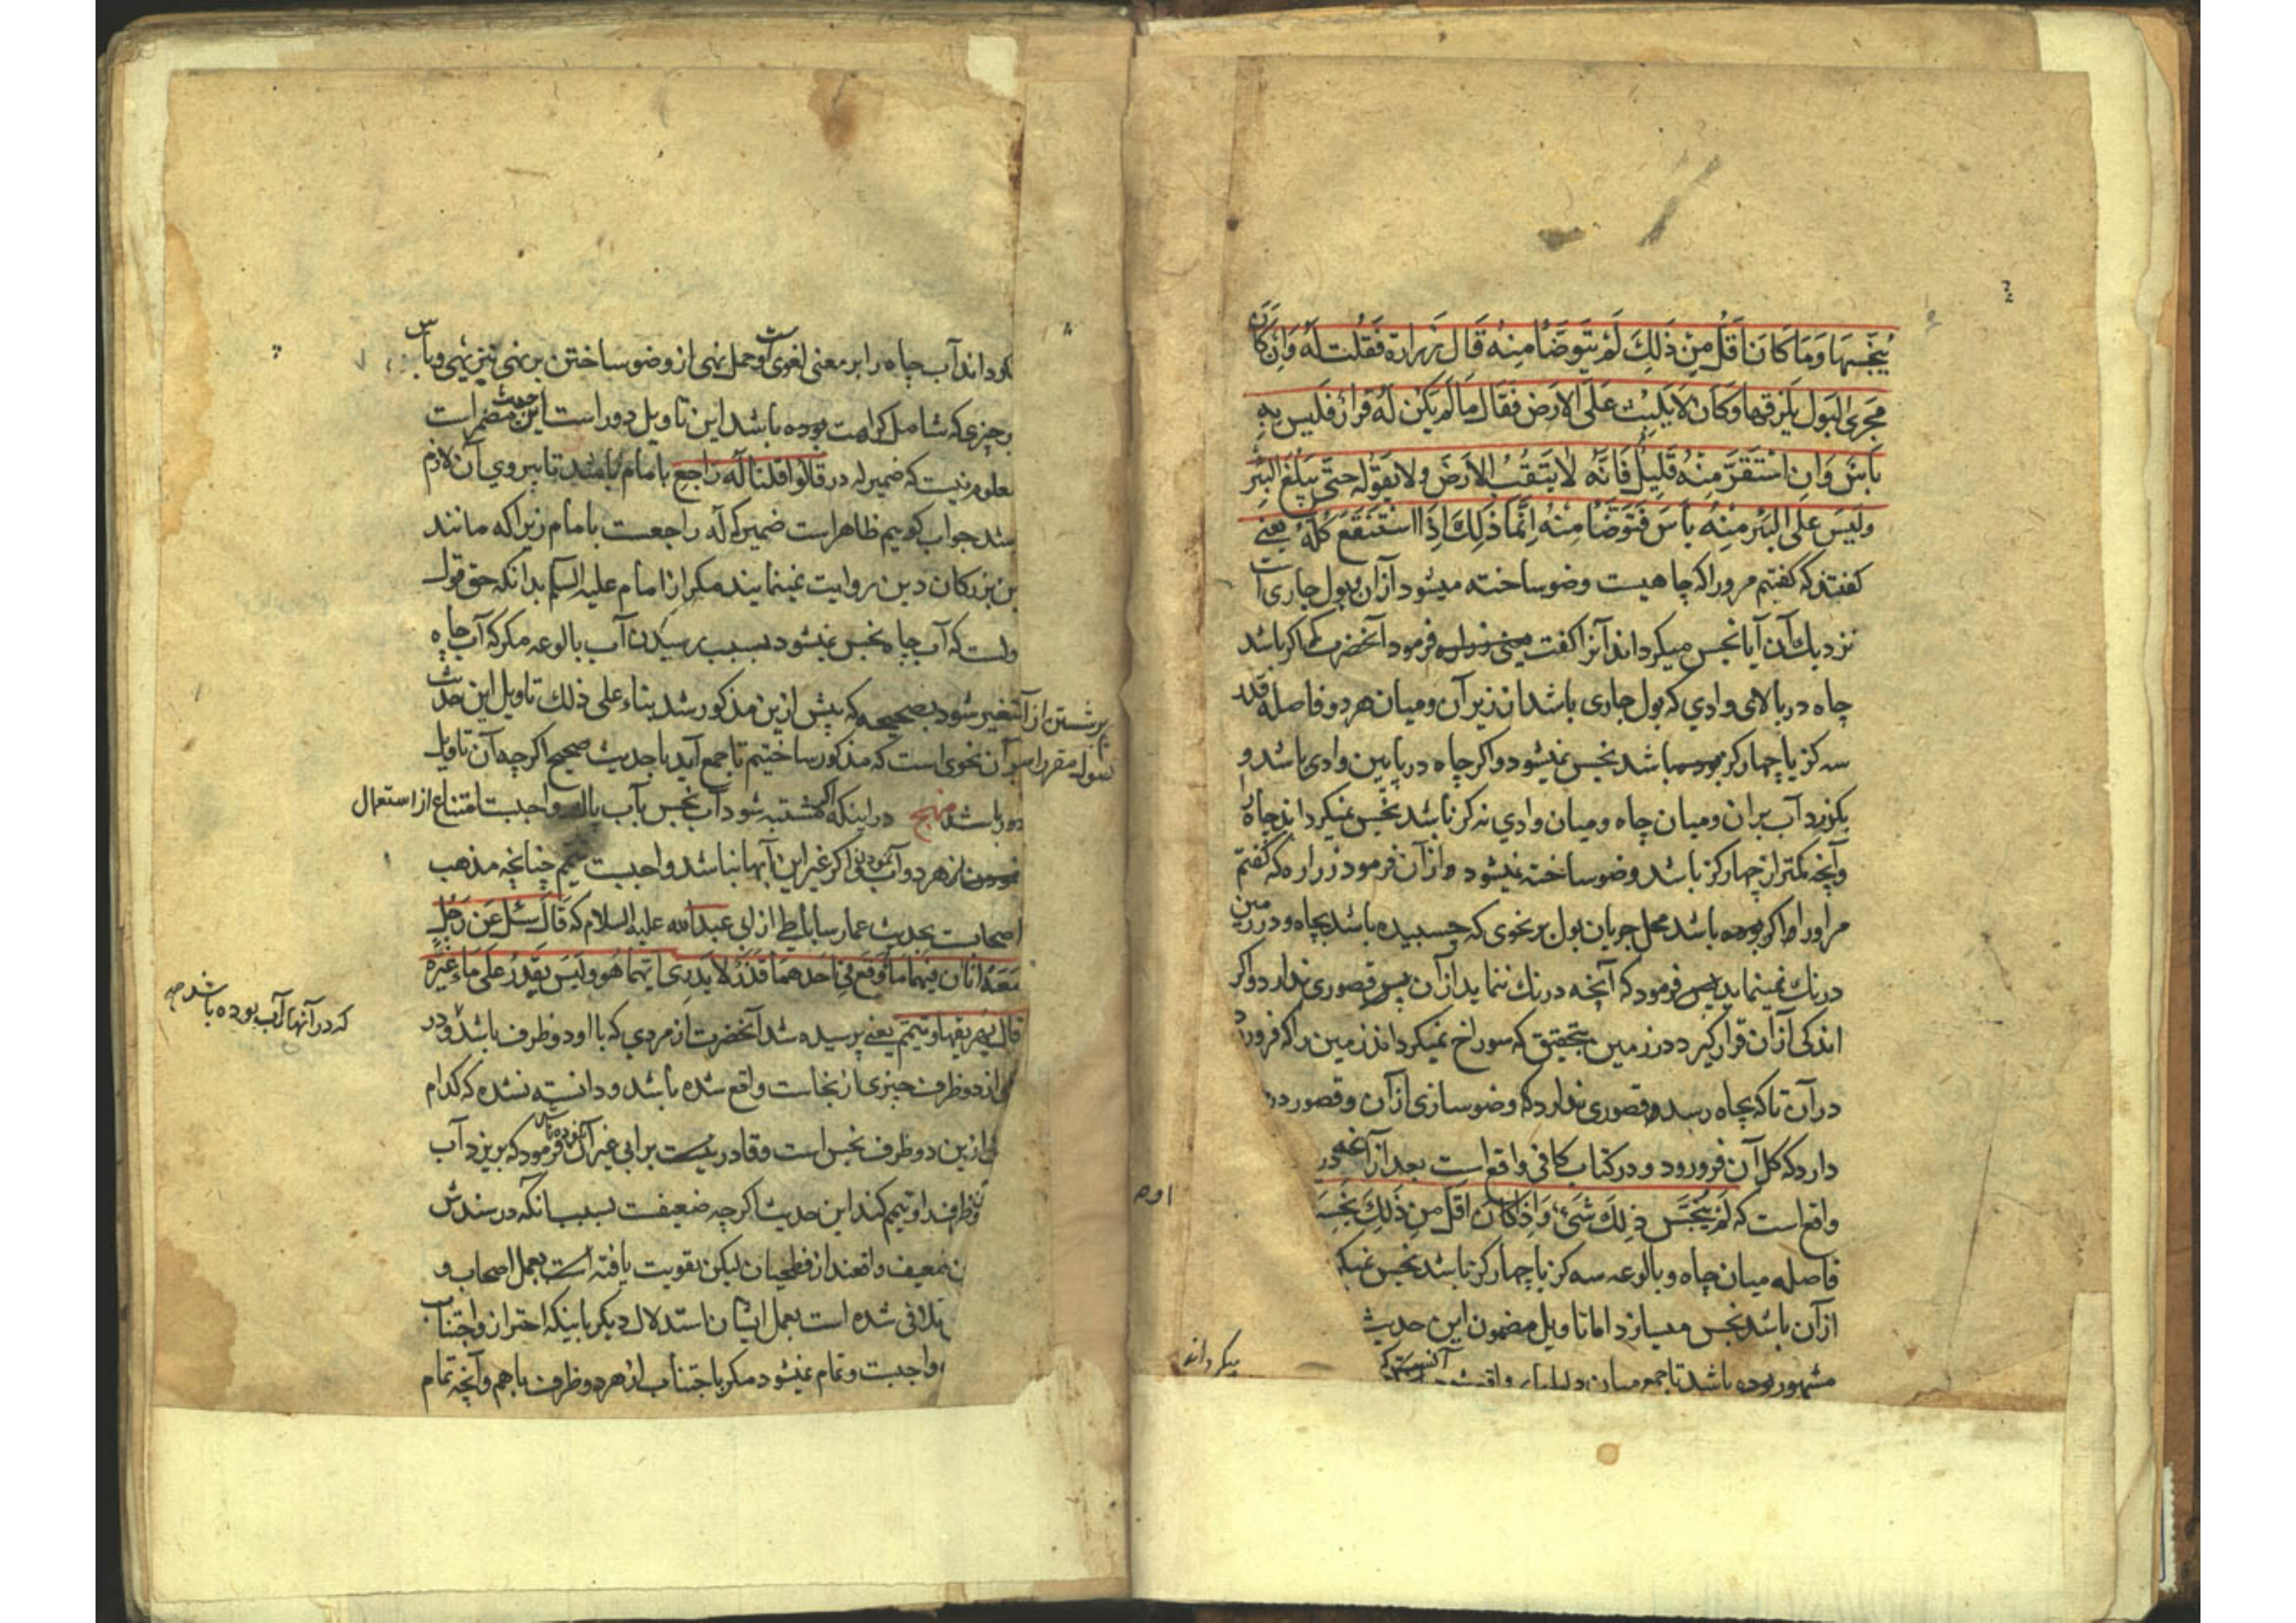 یُنَجِّسُهَا وَمَا كَانَ اَقَلَّ مِنْ ذَلِكَ لَمْ یَتَوَضَّأْ مِنْهُ قَالَ زُرَارَة فَقُلْتُ لَهُ وَاِنْ كَانَ
مَجْرَی الْبَوْلِ یَلْزِقُهَا وَكَانَ لَا یَلْبِثُ عَلَی الْاَرْضِ فَقَالَ مَا لَمْ یَكُنْ لَهُ قَرَارٌ فَلَیْسَ بِهِ
بَأْسٌ وَاِنِ اسْتَقَرَّ مِنْهُ قَلِیلٌ فَاِنَّهُ لَا یَثْقُبُ الْاَرْضَ وَلَا یَقُولُه حَتَّی یَبْلُغَ الْبِئْرَ
وَلَیْسَ عَلَی الْبِئْرِ مِنْهُ بَأْسٌ فَتَوَضَّأْ مِنْهُ اِنَّمَا ذَلِكَ اِذَا اسْتَنْقَعَ كُلُّهُ یعنی
كفتند كه كفتیم مر ورا كه چاهیست وضو ساخته میشود از آن بول جاری است
نزدیك آن آیا نجس میكرداند آنرا كفت فرمود آنحضرت كه اكر باشد
چاه در بالای وادی كه بول جاری باشد از زیر آن ومیان هر دو فاصله قدر
سه كز یا چهار كز بوده باشد نجس نمیشود واكر چاه در پایین وادی باشد و
بكذرد آب بر ان ومیان چاه ومیان وادی نه كز باشد نجس نمیكرداند چاه را
وآنچه كمتر از چهار كز باشد وضو ساخته نمیشود از آن فرمود زراره كه كفتم
مر اورا و اكر بوده باشد محل جریان بول بر نحوی كه چسبیده باشد بچاه و در زمین
درنك نمینماید پس فرمود كه آنچه درنك ننماید از آن پس قصوری ندارد و اكر
اندكی از آن قرار كیرد در زمین بتحقیق كه سوراخ نمیكرداند زمین را كه فرو رود
در آن تا كه بچاه رسد وقصوری ندارد كه وضو سازی از آن وقصور در
دارد كه كل آن فرو رود و در كتاب كافی واقع است بعد از آنچه در
واقع است كه لَمْ یُنَجَّسْ ذلِكَ شَیءٌ وَاِذَا كَانَ اَقَلَّ مِنْ ذَلِكَ یُنَجِّسُ
فاصله میان چاه و بالوعه سه كز یا چهار كز باشد نجس نمیكر
از آن باشد نجس میسازد اما تاویل مضمون این حدیث
آنست كه
مشهور بوده باشد تا جمع میان دلیلها
میكرداند
كرداند آب چاه را بر معنی لغوی است وحمل نهی از وضو ساختن بر نهی تنزیهی وبأس
بر چیزی كه شامل كراهت بوده باشد این تاویل دور است این حدیث مضمر است
معلوم نیست كه ضمیر له در قالوا قلنا له راجع بامام باشد تا پیروی آن لازم
باشد جواب كوییم ظاهر است ضمیر كه له راجعست بامام زیرا كه مانند
این بزركان دین روایت نمینمایند مكر از امام علیه السلم بدانكه حق قول
اولست كه آب چاه نجس نمیشود بسبب رسیدن آب بالوعه مكر كه آب چاه
متغیر شود بصحیحه كه پیش ازین مذكور شد بناء علی ذلك تاویل این حدیث
بر آن نحوی است كه مذكور ساختیم تا جمع آید با حدیث صحیح اكرچه آن تاویل
دور باشد منهج در اینكه اكر مشتبه شود آب نجس بآب پاك واجبست امتناع از استعمال
نمودن از هر دو آب و اكر غیر این آبها نباشد واجبست تیمم چنانچه مذهب
اصحابست بحدیث عمار ساباطی از ابی عبدالله علیه السلام كه قَالَ سُئِلَ عَنْ رَجُلٍ
مَعَهُ اناآن فیهما ماءٌ وَقَعَ فِی اَحَدِهِمَا قَذَرٌ لا یَدرِی اَیّهما هُوَ وَلَیْسَ یَقْدِرُ عَلَی مَاءٍ غَیْرِهِ
كه در آنها آب بوده باشد صح
قال یهریقهما وتیمّم یعنی پرسیده شد آنحضرت از مردی كه با او دو ظرف باشد و در
یكی از دو ظرف چیزی از نجاست واقع شده باشد و دانسته نشده كه كدام
یك ازین دو ظرف نجس است وقادر نیست بر آبی غیر آن فرمود كه بریزد آب
دو ظرف را و تیمم كند این حدیث اكرچه ضعیفست بسبب آنكه در سندش
ضعیف واقعند از فطحیان لیكن تقویت یافته است بعمل اصحاب و
تلافی شده است بعمل ایشان استدلال دیكر باینكه احتراز واجتناب
واجبست وتمام نمیشود مكر باجتناب از هر دو ظرف با هم وآنچه تمام